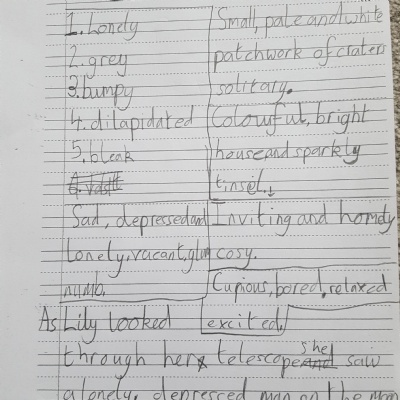 1. Lonely
2. grey
3. bumpy
4. dilapidated
5. bleak
Sad, depressed and
Lonely, vacant, glum
numb.
Small, pale and white
patchwork of craters
solitary.
Colourful, bright
house and sparkly
tinsel.
Inviting and homely
cosy.
Curious, bored, relaxed
excited.
As Lily looked
through her telescope she saw
a lonely, depressed man on the moon